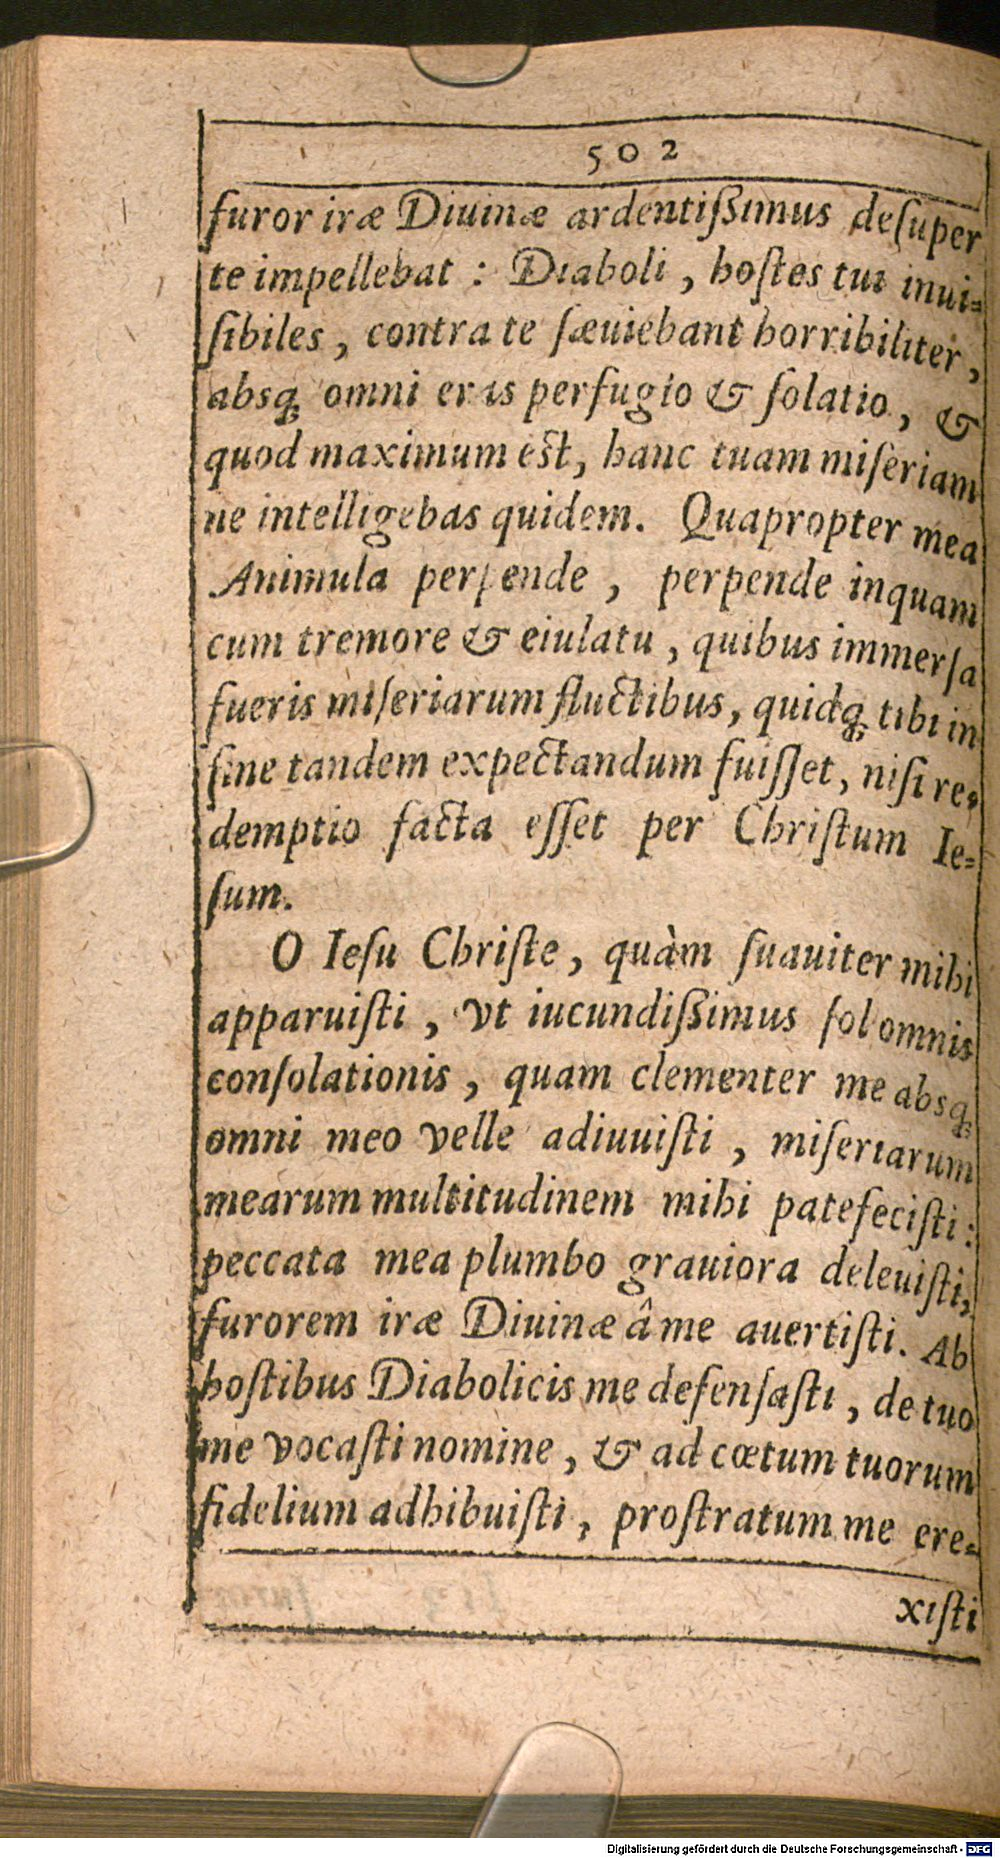 502
furor iræ Diuinæ ardentiſſimus deſuper
te impellebat : Diaboli , hoſtes tui inui=
ſibiles , contra te ſæuiebant horribiliter,
absq; omni eras perfugio & ſolatio, &
quod maximum est, hanc tuam miſeriam
ne intelligebas quidem. Quapropter mea
Animula perpende , perpende inquam
cum tremore & eiulatu , quibus immerſa
fueris miſeriarum fluctibus, quidq; tibi in
fine tandem expectandum fuiſſet, niſi re=
demptio facta eſſet per Chriſtum Ie=
ſum.
O Ieſu Chriſte, quàm ſuauiter mihi
apparuiſti , vt iucundiſſimus ſol omnis
conſolationis , quam clementer me absq;
omni meo velle adiuuiſti , miſeriarum
mearum multitudinem mihi patefeciſti :
peccata mea plumbo grauiora deleuiſti,
furorem iræ Diuinæ â me auertiſti. Ab
hoſtibus Diabolicis me defenſaſti , de tuo
me vocaſti nomine , & ad cœtum tuorum
fidelium adhibuiſti , proſtratum me ere=
xiſti
Digitalisierung gefördert durch die Deutsche Forschungsgemeinschaft - DFG